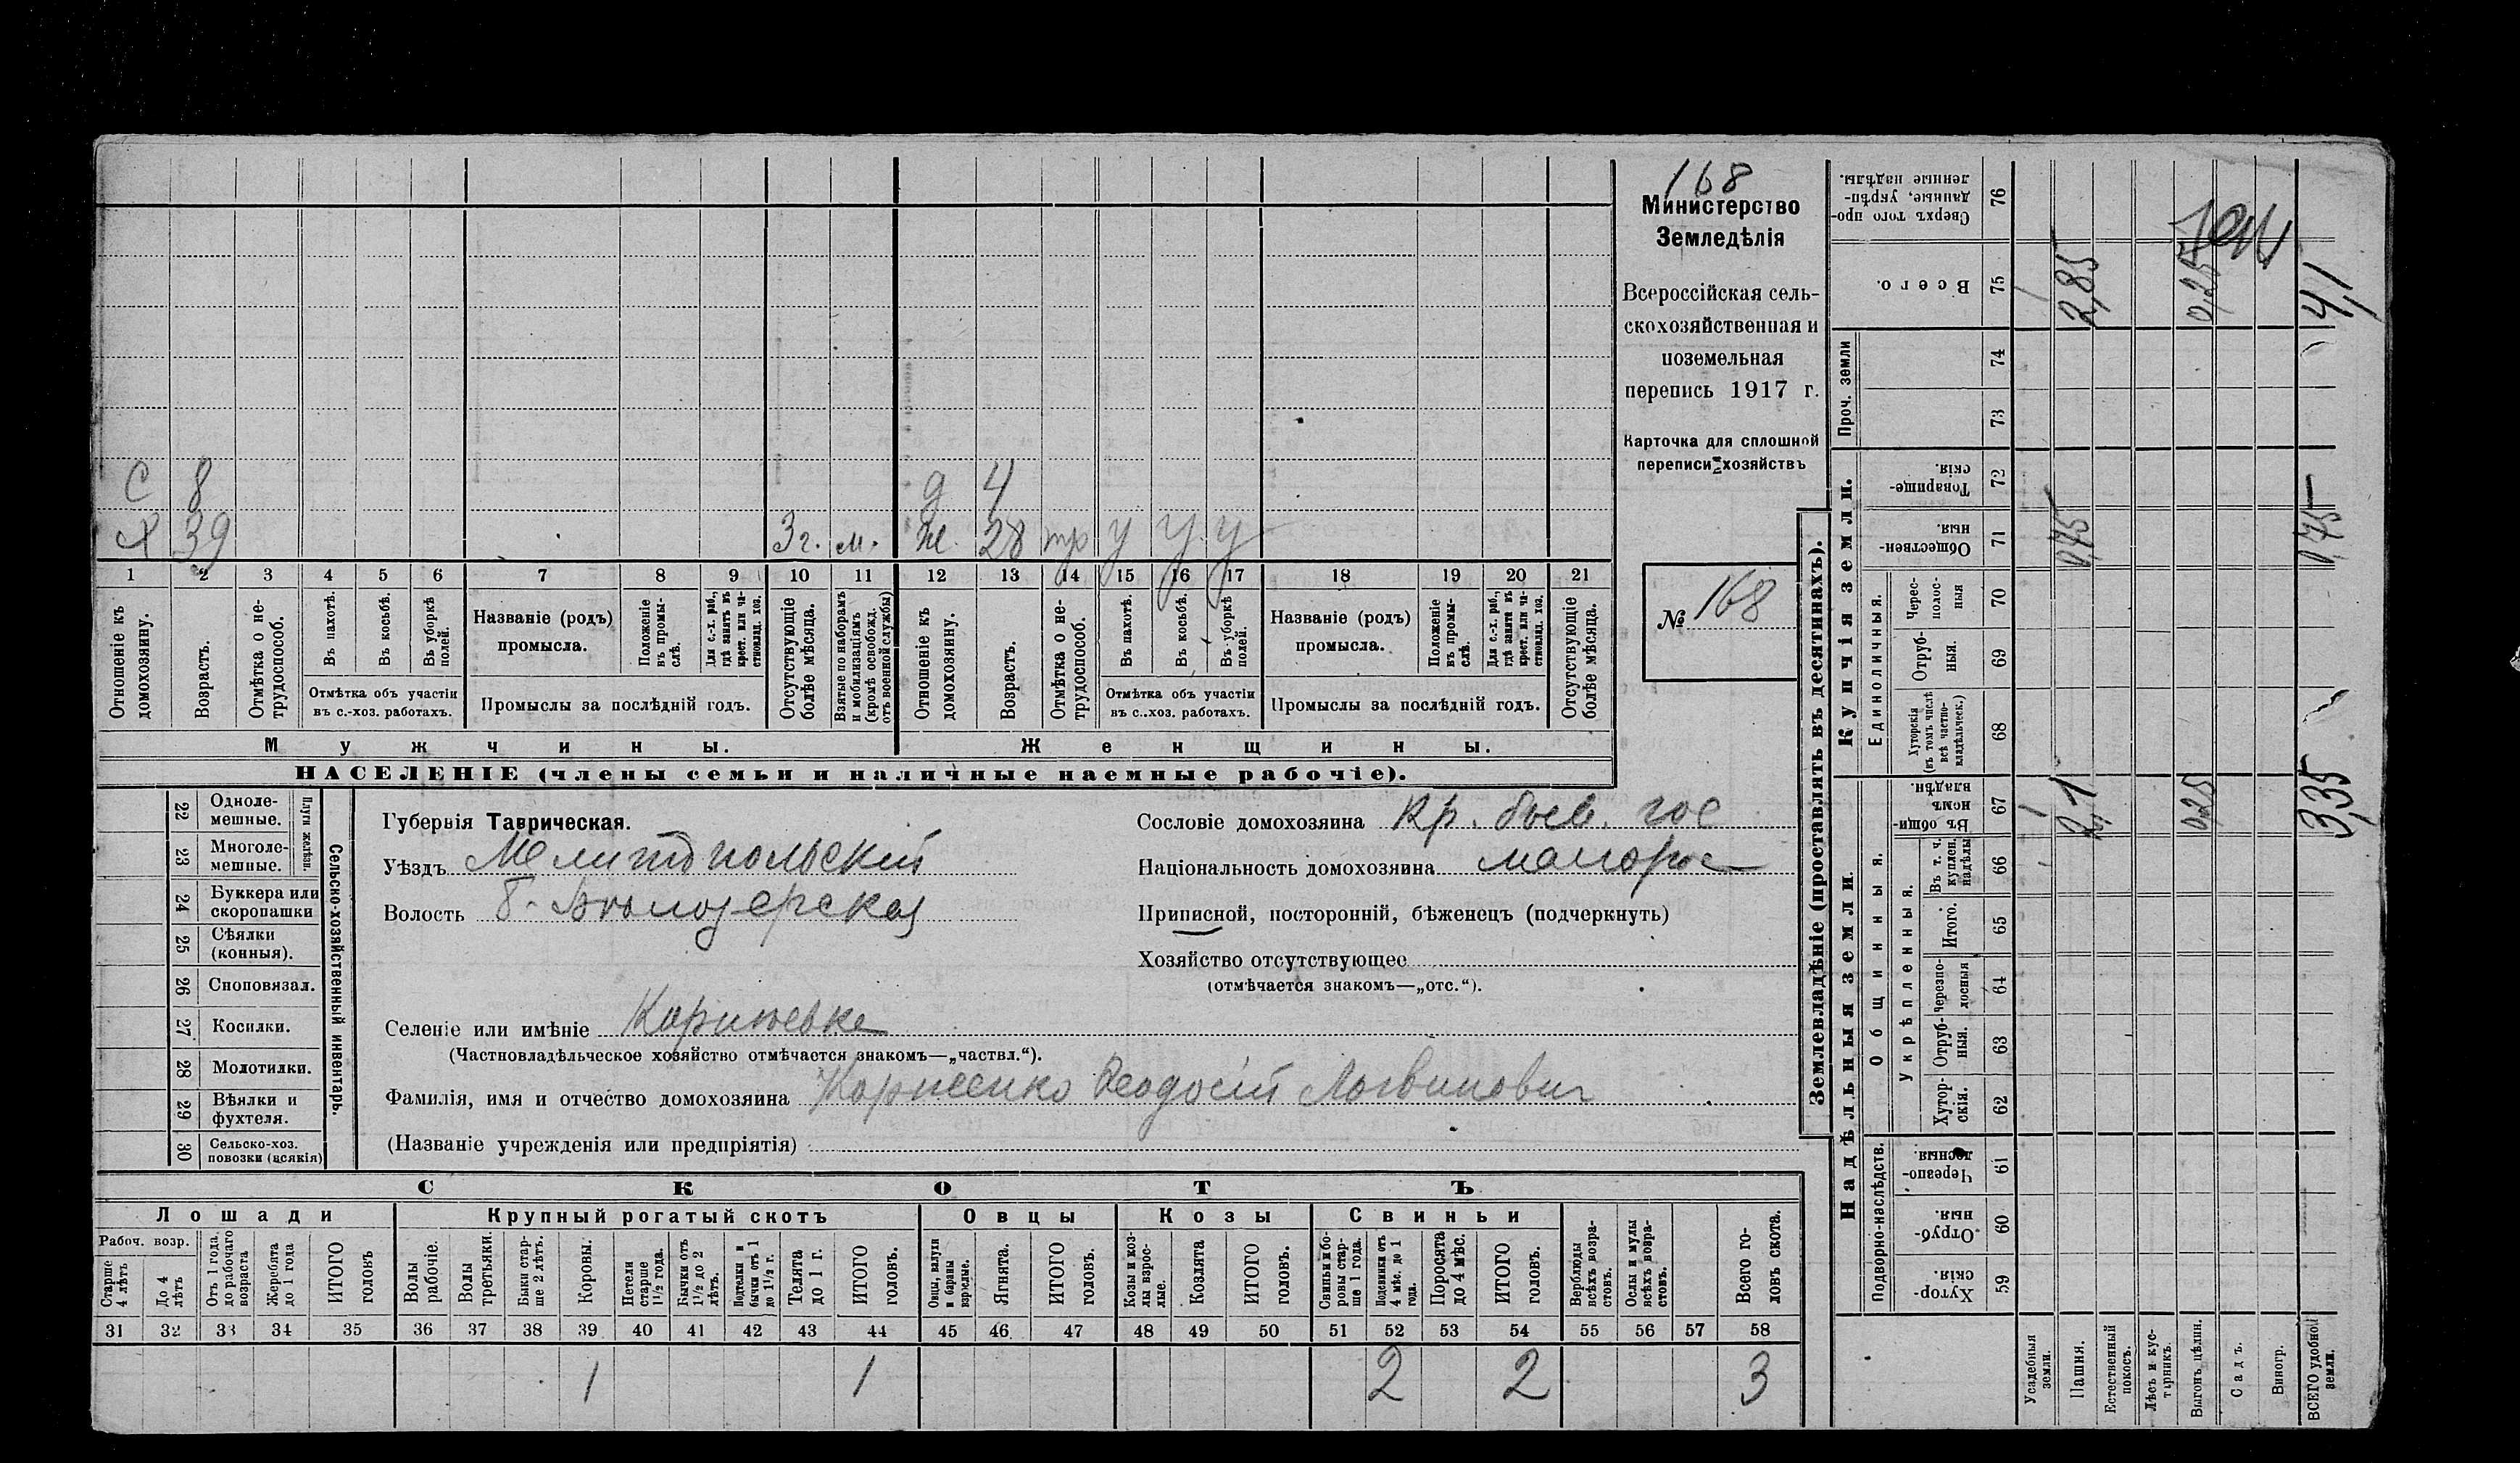 168
Министерство
Земледѣлія
Всероссійская сель-
скохозяйственная и
поземельная
перепись 1917 г.
Карточка для сплошной
переписи хозяйствъ
№ 168
С 8 д 4
Х 39 3 г. м. ж. 28 тр у у. у
1 2 3 4 5 6 7 8 9 10 11 12 13 14 15 16 17 18 19 20 21
Отношеніе къ домохозяину.
Возрастъ.
Отмѣтка о не-трудоспособ.
Въ пахотѣ.
Въ косьбѣ.
Въ уборкѣ полей.
Отмѣтка объ участіи
въ с.-хоз. работахъ.
Названіе (родъ)
промысла.
Положеніе въ промы-слѣ.
Для с.-х. раб., гдѣ занятъ въ крест. или ча-стновлад. хоз.
Промыслы за послѣдній годъ.
Отсутствующіе болѣе мѣсяца.
Взятые по наборамъ и мобилизаціямъ (кромѣ освобожд. отъ военной службы)
Отношеніе къ домохозяину.
Возрастъ.
Отмѣтка о не-трудоспособ.
Въ пахотѣ.
Въ косьбѣ.
Въ уборкѣ полей.
Отмѣтка объ участіи
въ с.-хоз. работахъ.
Названіе (родъ)
промысла.
Положеніе въ промы-слѣ.
Для с.-х. раб., гдѣ занята въ крест. или ча-стновлад. хоз.
Промыслы за послѣдній годъ.
Отсутствующіе болѣе мѣсяца.
Мужчины. Женщины.
НАСЕЛЕНІЕ (члены семьи и наличные наемные рабочіе).
22 Одноле-мешные.
23 Многоле-мешные.
Плуги желѣзн.
24 Буккера или скоропашки
25 Сѣялки (конныя).
26 Сноповязал.
27 Косилки.
28 Молотилки.
29 Вѣялки и фухтеля.
30 Сельско-хоз. повозки (всякія)
Сельско-хозяйственный инвентарь.
Губернія Таврическая.
Уѣздъ Мелитопольскій
Волость Б. Бѣлозерская
Селеніе или имѣніе
(Частновладѣльческое хозяйство отмѣчается знакомъ—„частвл.“).
Фамилія, имя и отчество домохозяина Корнеенко Феодосій Логвинович
(Названіе учрежденія или предпріятія)
Сословіе домохозяина Кр. быв. гос
Національность домохозяина малорос
Приписной, посторонній, бѣженецъ (подчеркнуть)
Хозяйство отсутствующее
(отмѣчается знакомъ—„отс.“).
СКОТЪ
Лошади Крупный рогатый скотъ Овцы Козы Свиньи
Рабоч. возр.
Старше 4 лѣтъ
До 4 лѣтъ
Отъ 1 года до рабочаго возраста
Жеребята до 1 года
ИТОГО головъ
Волы рабочіе.
Волы третьяки.
Быки стар-ше 2 лѣтъ.
Коровы.
Нетели старше 1½ года.
Бычки отъ 1½ до 2 лѣтъ.
Подтелки и бычки отъ 1 до 1½ г.
Телята до 1 г.
ИТОГО головъ.
Овцы, валухи и бараны взрослые.
Ягнята.
ИТОГО головъ.
Козы и коз-лы взрос-лые.
Козлята
ИТОГО головъ.
Свиньи и бо-ровы стар-ше 1 года.
Подсвинки отъ 4 мѣс. до 1 года.
Поросята до 4 мѣс.
ИТОГО головъ.
Верблюды всѣхъ возра-стовъ.
Ослы и мулы всѣхъ возра-стовъ.
Всего го-ловъ скота.
31 32 33 34 35 36 37 38 39 40 41 42 43 44 45 46 47 48 49 50 51 52 53 54 55 56 57 58
1 1 2 2 3
Землевладѣніе (проставлять въ десятинахъ).
Надѣльныя земли. Купчія земли. Проч. земли
Подворно-наслѣдств.
Общинныя.
Укрѣпленныя.
Единоличныя.
59 Хутор-скія.
60 Отруб-ныя.
61 Черезпо-лосныя.
62 Хутор-скія.
63 Отруб-ныя.
64 Черезпо-лосныя
65 Итого.
66 Въ т. ч. куплен. надѣлы
67 Въ общин-номъ владѣн.
68 Хуторскія (въ томъ числѣ всѣ частно-владѣльческ.)
69 Отруб-ныя.
70 Черес-полос-ныя
71 Обществен-ныя.
72 Товарище-скія.
73
74
75 Всего.
76 Сверхъ того про-данные, укрѣп-ленные надѣлы.
Усадебныя земли.
Пашня. 2,1 0,75 2,85
Естественный покосъ.
Лѣсъ и кус-тарникъ.
Выгонъ, цѣлин. 0,25 0,25
Садъ.
Виногр.
ВСЕГО удобной земли. 3,35 0,75 4,1